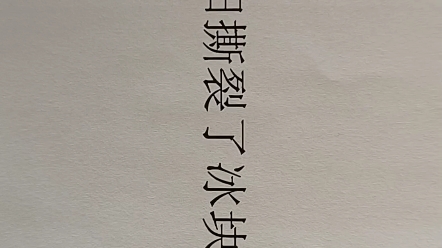 撕裂了冰块